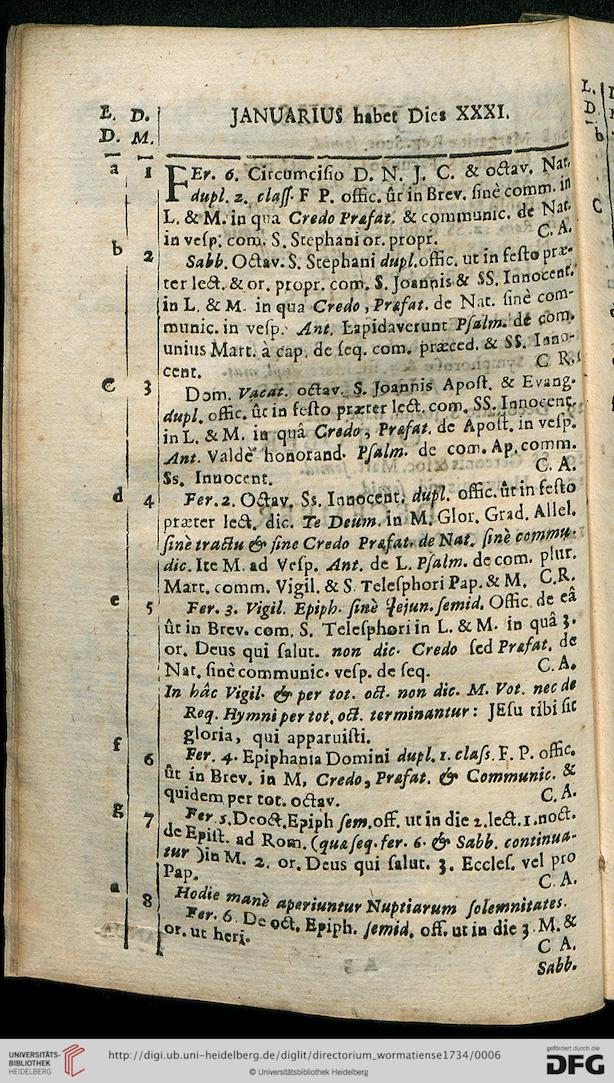 E. D. JANUARIUS habet Dies XXXI.
D. M.
a 1 FEr. 6. Circumcisio D. N. J. C. & octav. Nat.
dupl. 2. class. F P. offic. ût in Brev. sinè comm. in
L. & M. in qua Credo Præfat. & communic. de Nat.
in vesp. com. S. Stephani or. propr. C. A.
b 2 Sabb. Octav. S. Stephani dupl. offic. ut in festo præ-
ter lect. & or. propr. com. S. Joannis & SS. Innocent.
in L. & M. in qua Credo, Præfat. de Nat. sinè com-
munic. in vesp. Ant. Lapidaverunt Psalm. de com.
unius Mart. à cap. de seq. com. præced. & SS. Inno-
cent. C R.
c 3 Dom. Vacat. octav. S. Joannis Apost. & Evang.
dupl. offic. ût in festo præter lect. com. SS. Innocent.
in L. & M. in quâ Credo, Præfat. de Apost. in vesp.
Ant. Valdè honorand. Psalm. de com. Ap. comm.
Ss. Innocent. C. A.
d 4 Fer. 2. Octav. Ss. Innocent. dupl. offic. ût in festo
præter lect. dic. Te Deum. in M. Glor. Grad. Allel.
sinè tractu & sine Credo Præfat. de Nat. sinè commu-
dic. Ite M. ad Vesp. Ant. de L. Psalm. de com. plur.
Mart. comm. Vigil. & S. Telesphori Pap. & M. C.R.
e 5 Fer. 3. Vigil. Epiph. sinè Jejun. semid. Offic. de eâ
ût in Brev. com. S. Telesphori in L. & M. in quâ 3.
or. Deus qui salut. non dic. Credo sed Præfat. de
Nat. sinè communic. vesp. de seq. C. A.
In hâc Vigil. & per tot. oct. non dic. M. Vot. nec de
Req. Hymni per tot. oct. terminantur: JEsu tibi sit
gloria, qui apparuisti.
f 6 Fer. 4. Epiphania Domini dupl. 1. class. F. P. offic.
ût in Brev. in M, Credo, Præfat. & Communic. &
quidem per tot. octav. C. A.
g 7 Fer 5. De oct. Epiph sem. off. ut in die 2. lect. 1. noct.
de Epist. ad Rom. (quæ seq. fer. 6. & Sabb. continua-
tur) in M. 2. or. Deus qui salut. 3. Eccles. vel pro
Pap. C. A.
Hodie manè aperiuntur Nuptiarum solemnitates.
a 8 Fer. 6. De oct. Epiph. semid. off. ut in die 3. M. &
or. ut heri. C A.
Sabb.
L.
D.
b
C
UNIVERSITÄTS-
BIBLIOTHEK
HEIDELBERG
http://digi.ub.uni-heidelberg.de/diglit/directorium_wormatiense1734/0006
© Universitätsbibliothek Heidelberg
gefördert durch die
DFG